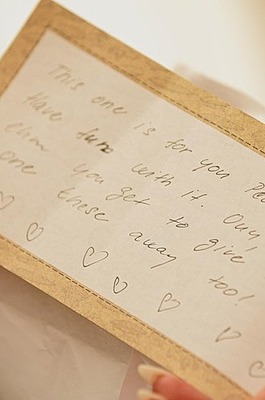 This one is for you
Have fun with it. Our
you get to give
one these away too!